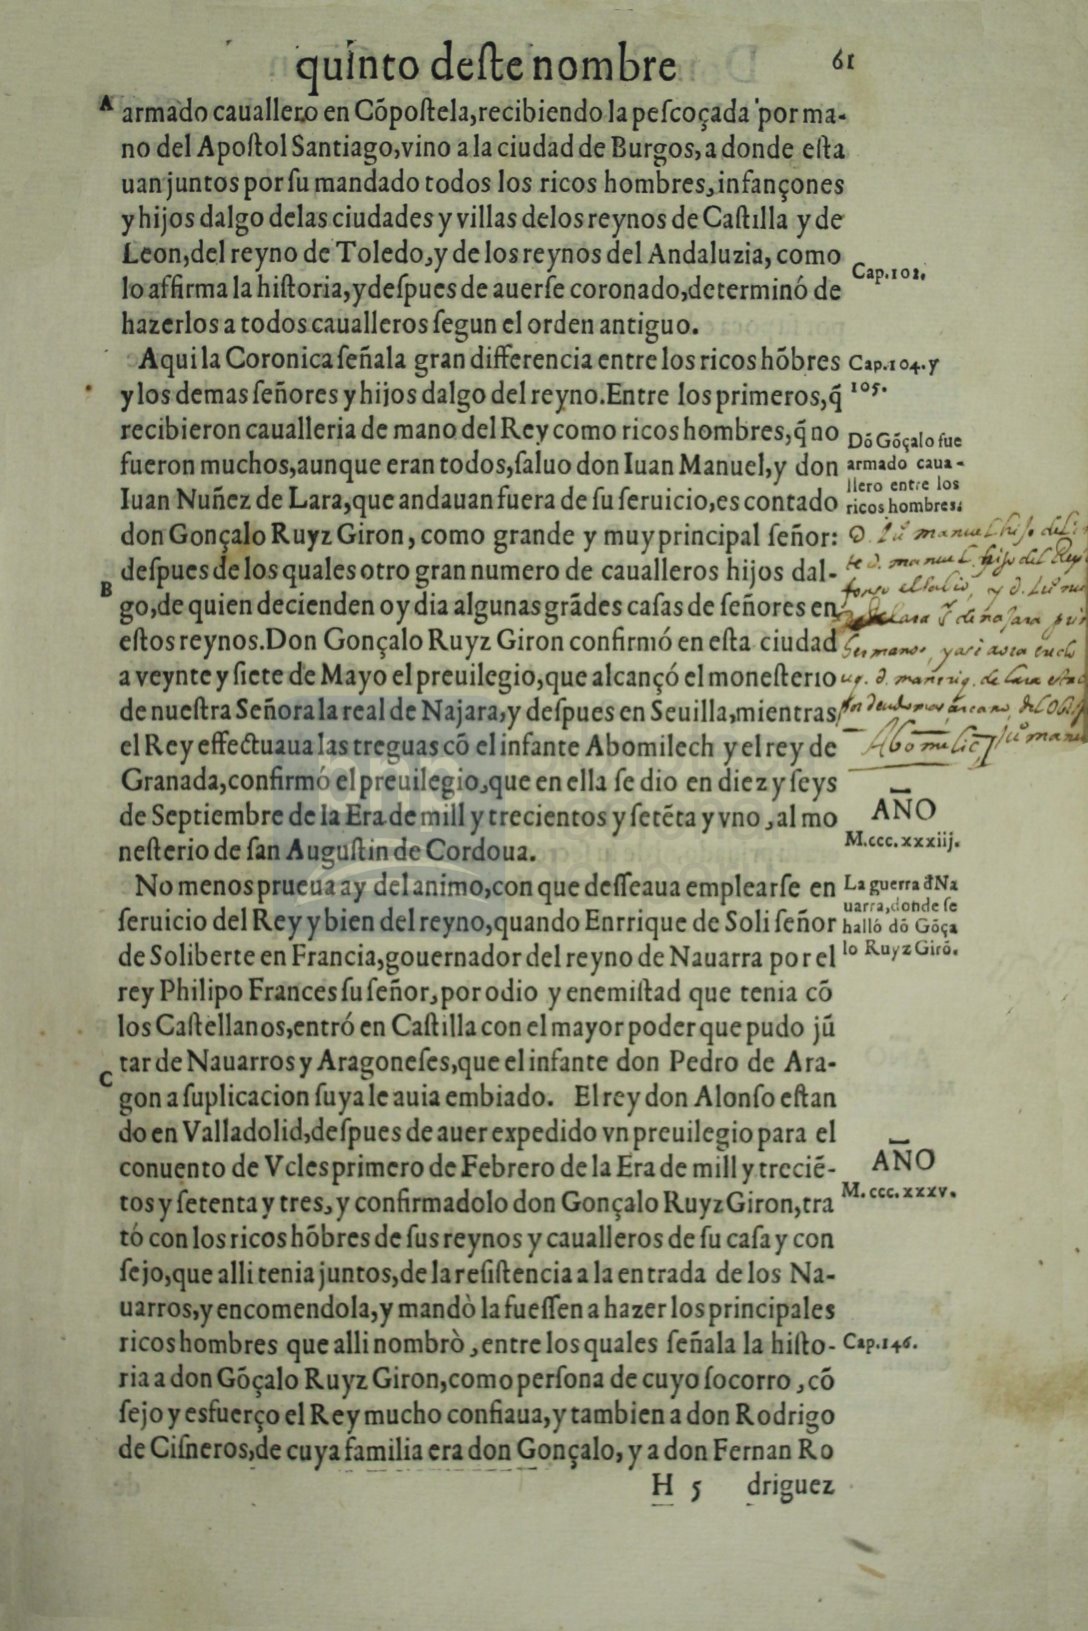 quinto deſte nombre
61
A
armado cauallero en Cõpoſtela, recibiendo la peſcoçada por ma-
no del Apoſtol Santiago, vino a la ciudad de Burgos, a donde eſta
uan juntos por ſu mandado todos los ricos hombres, infançones
y hijos dalgo delas ciudades y villas delos reynos de Caſtilla y de
Leon, del reyno de Toledo, y de los reynos del Andaluzia, como
Cap. 102.
lo affirma la hiſtoria, y deſpues de auerſe coronado, determinó de
hazerlos a todos caualleros ſegun el orden antiguo.
Aqui la Coronica ſeñala gran differencia entre los ricos hõbres
Cap. 104. y
105.
y los demas ſeñores y hijos dalgo del reyno. Entre los primeros, q̃
recibieron caualleria de mano del Rey como ricos hombres, q̃ no
Dõ Gõçalo fue
armado caua-
llero entre los
ricos hombres.
fueron muchos, aunque eran todos, ſaluo don Iuan Manuel, y don
Iuan Nuñez de Lara, que andauan fuera de ſu ſeruicio, es contado
don Gonçalo Ruyz Giron, como grande y muy principal ſeñor:
D. Juº manuel hijo del
te d. manuel hijo del Rey
deſpues de los quales otro gran numero de caualleros hijos dal-
B
el sabio, y d. Juº
go, de quien decienden oy dia algunas grãdes caſas de ſeñores en
lara de najara
eſtos reynos. Don Gonçalo Ruyz Giron confirmó en eſta ciudad
hermano, y asi
a veynte y ſiete de Mayo el preuilegio, que alcançó el moneſterio
d. de lara
de nueſtra Señora la real de Najara, y deſpues en Seuilla, mientras
el Rey effectuaua las treguas cõ el infante Abomilech y el rey de
Abomelic Juº
Granada, confirmó el preuilegio, que en ella ſe dio en diez y ſeys
de Septiembre de la Era de mill y trecientos y ſetẽta y vno, al mo
AÑO
M.ccc.xxxiij.
neſterio de ſan Auguſtin de Cordoua.
No menos prueua ay del animo, con que deſſeaua emplearſe en
La guerra đ Na
uarra, donde ſe
halló dõ Gõça
lo Ruyz Girõ.
ſeruicio del Rey y bien del reyno, quando Enrrique de Soli ſeñor
de Soliberte en Francia, gouernador del reyno de Nauarra por el
rey Philipo Frances ſu ſeñor, por odio y enemiſtad que tenia cõ
los Caſtellanos, entró en Caſtilla con el mayor poder que pudo jũ
C
tar de Nauarros y Aragoneſes, que el infante don Pedro de Ara-
gon a ſuplicacion ſuya le auia embiado. El rey don Alonſo eſtan
do en Valladolid, deſpues de auer expedido vn preuilegio para el
conuento de Vcles primero de Febrero de la Era de mill y treciẽ-
AÑO
M.ccc.xxxv.
tos y ſetenta y tres, y confirmadolo don Gonçalo Ruyz Giron, tra
tó con los ricos hõbres de ſus reynos y caualleros de ſu caſa y con
ſejo, que alli tenia juntos, de la reſiſtencia a la entrada de los Na-
uarros, y encomendola, y mandò la fueſſen a hazer los principales
ricos hombres que alli nombrò, entre los quales ſeñala la hiſto-
Cap. 146.
ria a don Gõçalo Ruyz Giron, como perſona de cuyo ſocorro, cõ
ſejo y esfuerço el Rey mucho confiaua, y tambien a don Rodrigo
de Ciſneros, de cuya familia era don Gonçalo, y a don Fernan Ro
H 5 driguez